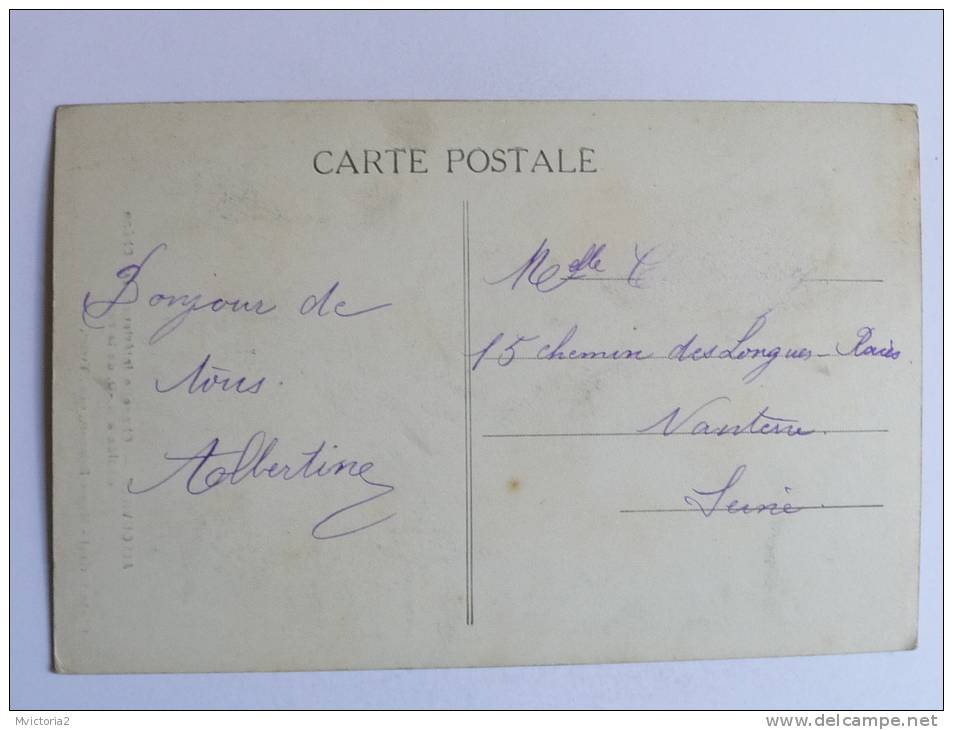 CARTE POSTALE
Bonjour de
tous.
Albertine
Melle
15 chemin des Longues-Raies.
Nanterre.
Seine
Mvictoria2
www.delcampe.net